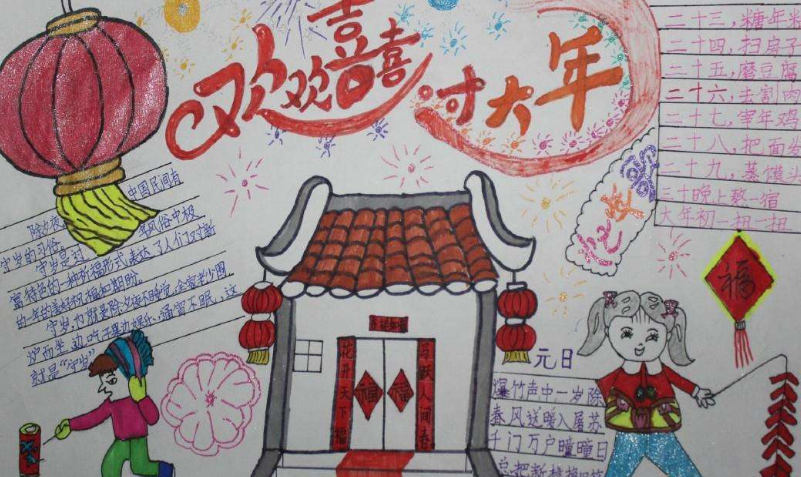 欢欢喜喜过大年
二十三，糖年粘
二十四，扫房子
二十五，磨豆腐
二十六，去割肉
二十七，宰年鸡
二十八，把面发
二十九，蒸馒头
三十晚上熬一宿
大年初一扭一扭
中国民间有
守岁的习俗
守岁是对
风俗中极
富特色的一种祈福形式表达了人们对新
的一年的美好祝福和期盼
守岁，也就是除夕夜不睡觉，全家老少围
炉而坐，边听边乐，通宵不眠，这
就是"守岁"
花开天下福
福
福
福
元日
爆竹声中一岁除
春风送暖入屠苏
千门万户曈曈日
总把新桃换旧符